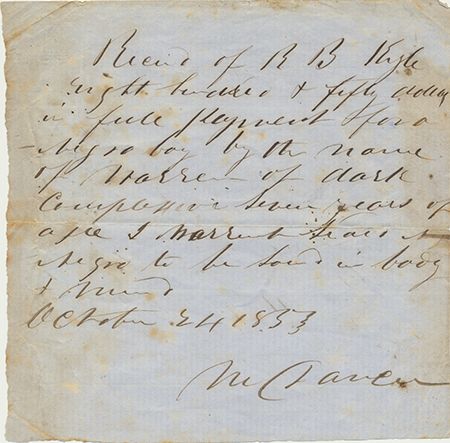 Recivd of R B Kyle
eight hundred & fifty dollars
in full payment for a
Negro boy by the name
of Warren of dark
Complexion Seven years of
age I warrent Said
Negro to be Sound in body
& mind
October 24 1853
M